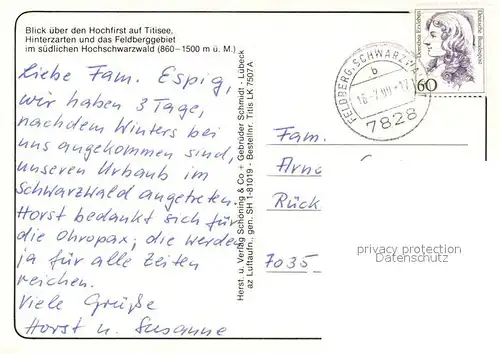 Blick über den Hochfirst auf Titisee,
Hinterzarten und das Feldberggebiet
im südlichen Hochschwarzwald (860–1500 m ü. M.)
Liebe Fam. Espig,
wir haben 3 Tage,
nachdem Winters bei
uns angekommen sind,
unseren Urlaub im
Schwarzwald angetreten.
Horst bedankt sich für
die Ohropax; die werden
ja für alle Zeiten
reichen.
Viele Grüße
Horst u. Susanne
Herst. u. Verlag Schöning & Co + Gebrüder Schmidt - Lübeck
az Luftaufn., gen. SH 1-81019 - Bestellnr. Titis LK 7507 A
FELDBERG, SCHWARZWA
b
7828
Dorothea Erxleben
Deutsche Bundespost
60
Fam.
Arno
Rück
7035
privacy protection
DatenSchutz